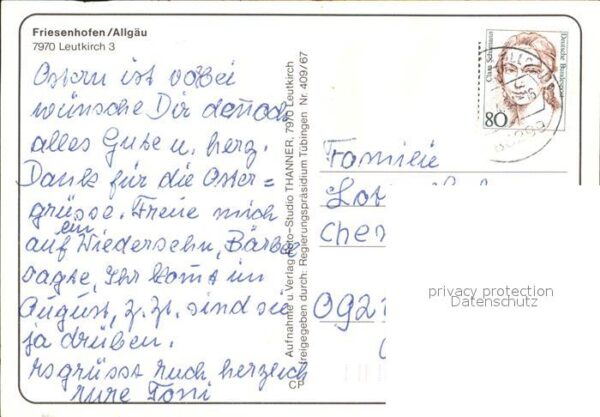 Friesenhofen/Allgäu
7970 Leutkirch 3
Ostern ist vorbei
wünsche Dir dennoch
alles Gute u. herz.
Dank für die Oster=
grüsse. Freue mich
auf ein Wiedersehn, Bärbel
sagte, Ihr komt im
August, z. Zt. sind sie
ja drüben.
Es grüsst Euch herzlich
Eure Toni
Aufnahme u. Verlag Foto-Studio THANNER, 7970 Leutkirch
freigegeben durch: Regierungspräsidium Tübingen Nr. 409/67
Claus Schumann
Deutsche Bundespost
80
Familie
Lot
Chem
092
privacy protection
Datenschutz